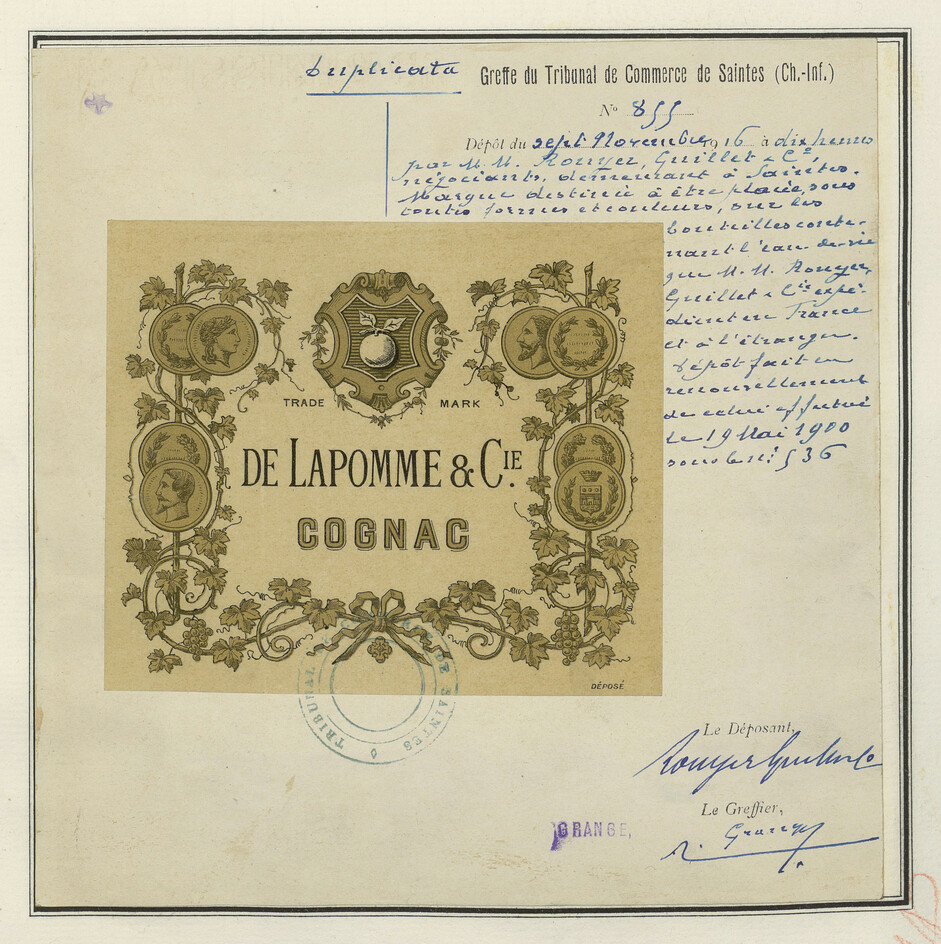 Duplicata
Greffe du Tribunal de Commerce de Saintes (Ch.-Inf.)
N° 855
Dépôt du sept Novembre 1916 à dix heures
par M. M. Rouyer, Guillet & Cie,
négociants, demeurant à Saintes.
Marque destinée à être placée, sous
toutes formes et couleurs, sur les
bouteilles conte-
nant l'eau-de-vie
que M. M. Rouyer,
Guillet & Cie expé-
dient en France
et à l'étranger.
Dépôt fait en
renouvellement
de celui effectué
le 19 Mai 1900
sous le n° 536
TRADE MARK
DE LAPOMME & CIE.
COGNAC
DÉPOSÉ
TRIBUNAL DE SAINTES
Le Déposant,
Rouyer Guillet & Co
Le Greffier,
GRANGE,
Grange